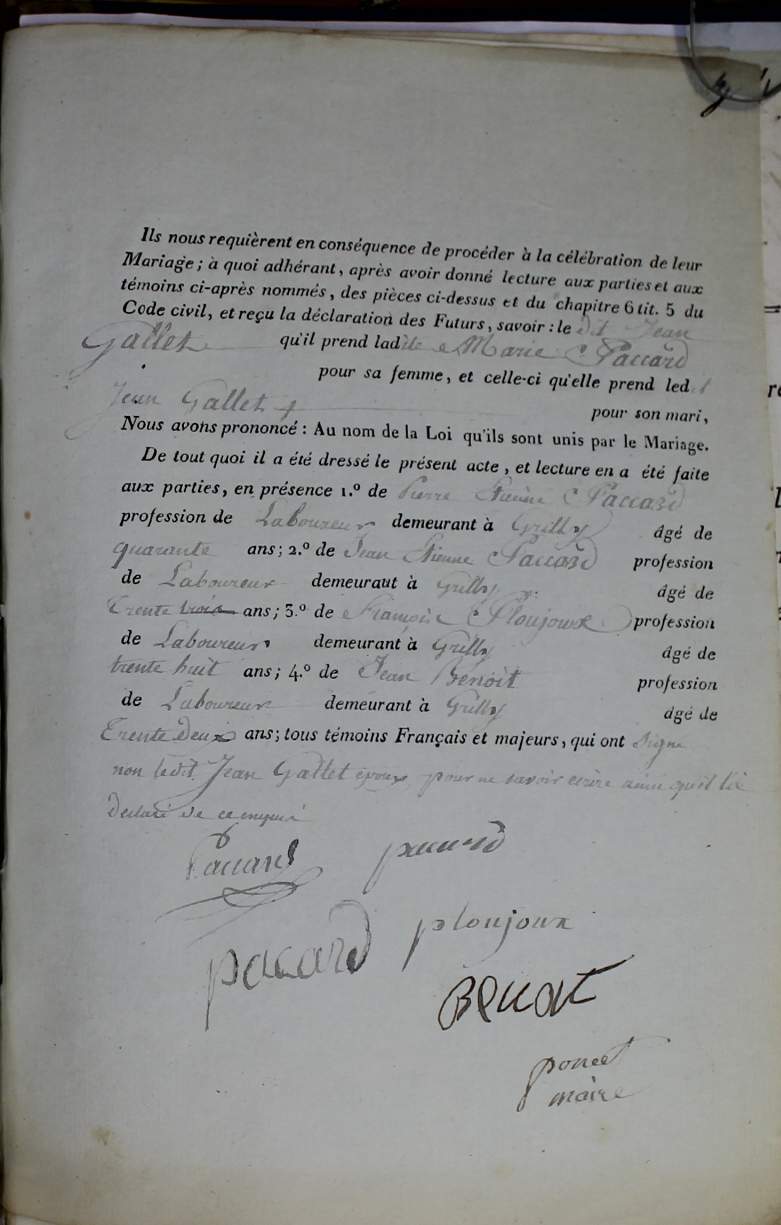 Ils nous requièrent en conséquence de procéder à la célébration de leur
Mariage; à quoi adhérant, après avoir donné lecture aux parties et aux
témoins ci-après nommés, des pièces ci-dessus et du chapitre 6 tit. 5 du
Code civil, et reçu la déclaration des Futurs, savoir : le dit Jean
Gallet qu'il prend ladite Marie Paccard
pour sa femme, et celle-ci qu'elle prend ledit
Jean Gallet pour son mari,
Nous avons prononcé : Au nom de la Loi qu'ils sont unis par le Mariage.
De tout quoi il a été dressé le présent acte, et lecture en a été faite
aux parties, en présence 1.º de Pierre Etienne Paccard
profession de Laboureur demeurant à Grilly âgé de
quarante ans; 2.º de Jean Etienne Paccard profession
de Laboureur demeuraut à Grilly âgé de
Trente trois ans; 3.º de François Ploujoux profession
de Laboureur demeurant à Grilly âgé de
trente huit ans; 4.º de Jean Benoit profession
de Laboureur demeurant à Grilly âgé de
Trente Deux ans; tous témoins Français et majeurs, qui ont signé
non ledit Jean Gallet époux pour ne savoir écrire ainsi qu'il l'a
Déclaré de ce requis
Paccard paccard
paccard ploujoux
Benoit
poncet
maire